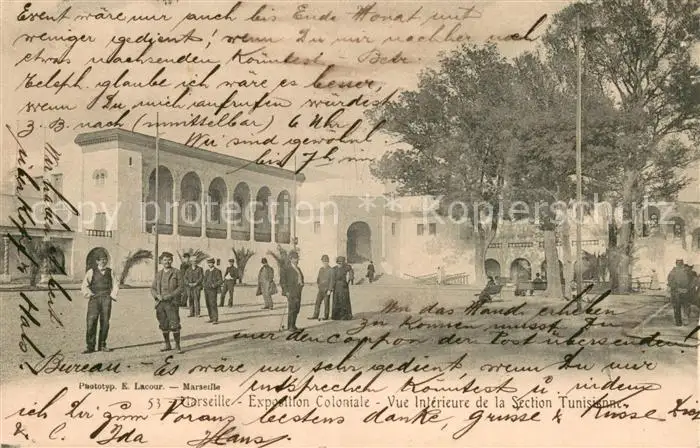 Event wäre mir auch bis Ende Monat mit
weniger gedient! wenn Du mir nachher noch
etwas nachsenden könntest – Betr.
Teleph. glaube ich wäre es besser,
wenn Du mich aufrufen würdest
z. B. nach (unmittelbar) 6 Uhr
Wir sind gewöhnl.
bis 7 h im
Bureau. – Es wäre mir sehr gedient, wenn Du mir
Wir haben Arbeit
über Kopf und Hals!
Um das Wand. erheben
zu können musst Du
mir den Coupon der Post übersenden
entsprechen könntest u. indem
ich Dir zum Voraus bestens danke, Grüsse & Küsse
& C. Ida Hans
© arkpointpublishers
Phototyp. E. Lacour. — Marseille
53 - Marseille - Exposition Coloniale - Vue Intérieure de la Section Tunisienne